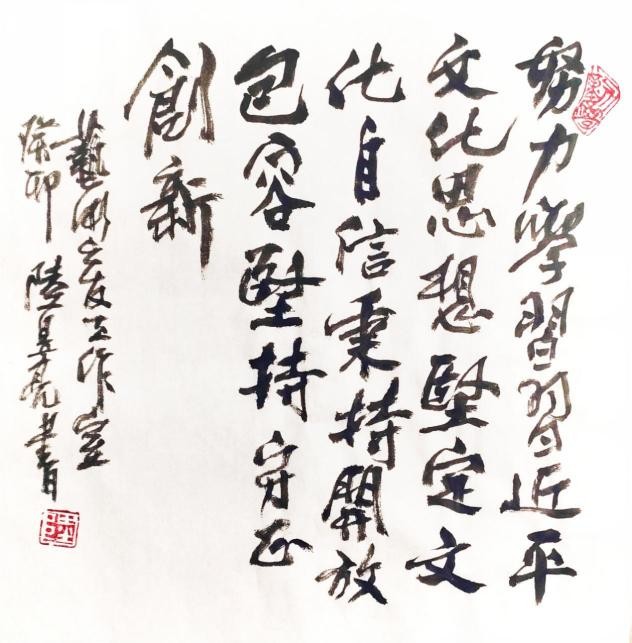 努力學習習近平
文化思想堅定文
化自信秉持開放
包容堅持守正
創新
藝術之友工作室
癸卯 陸昱亮書